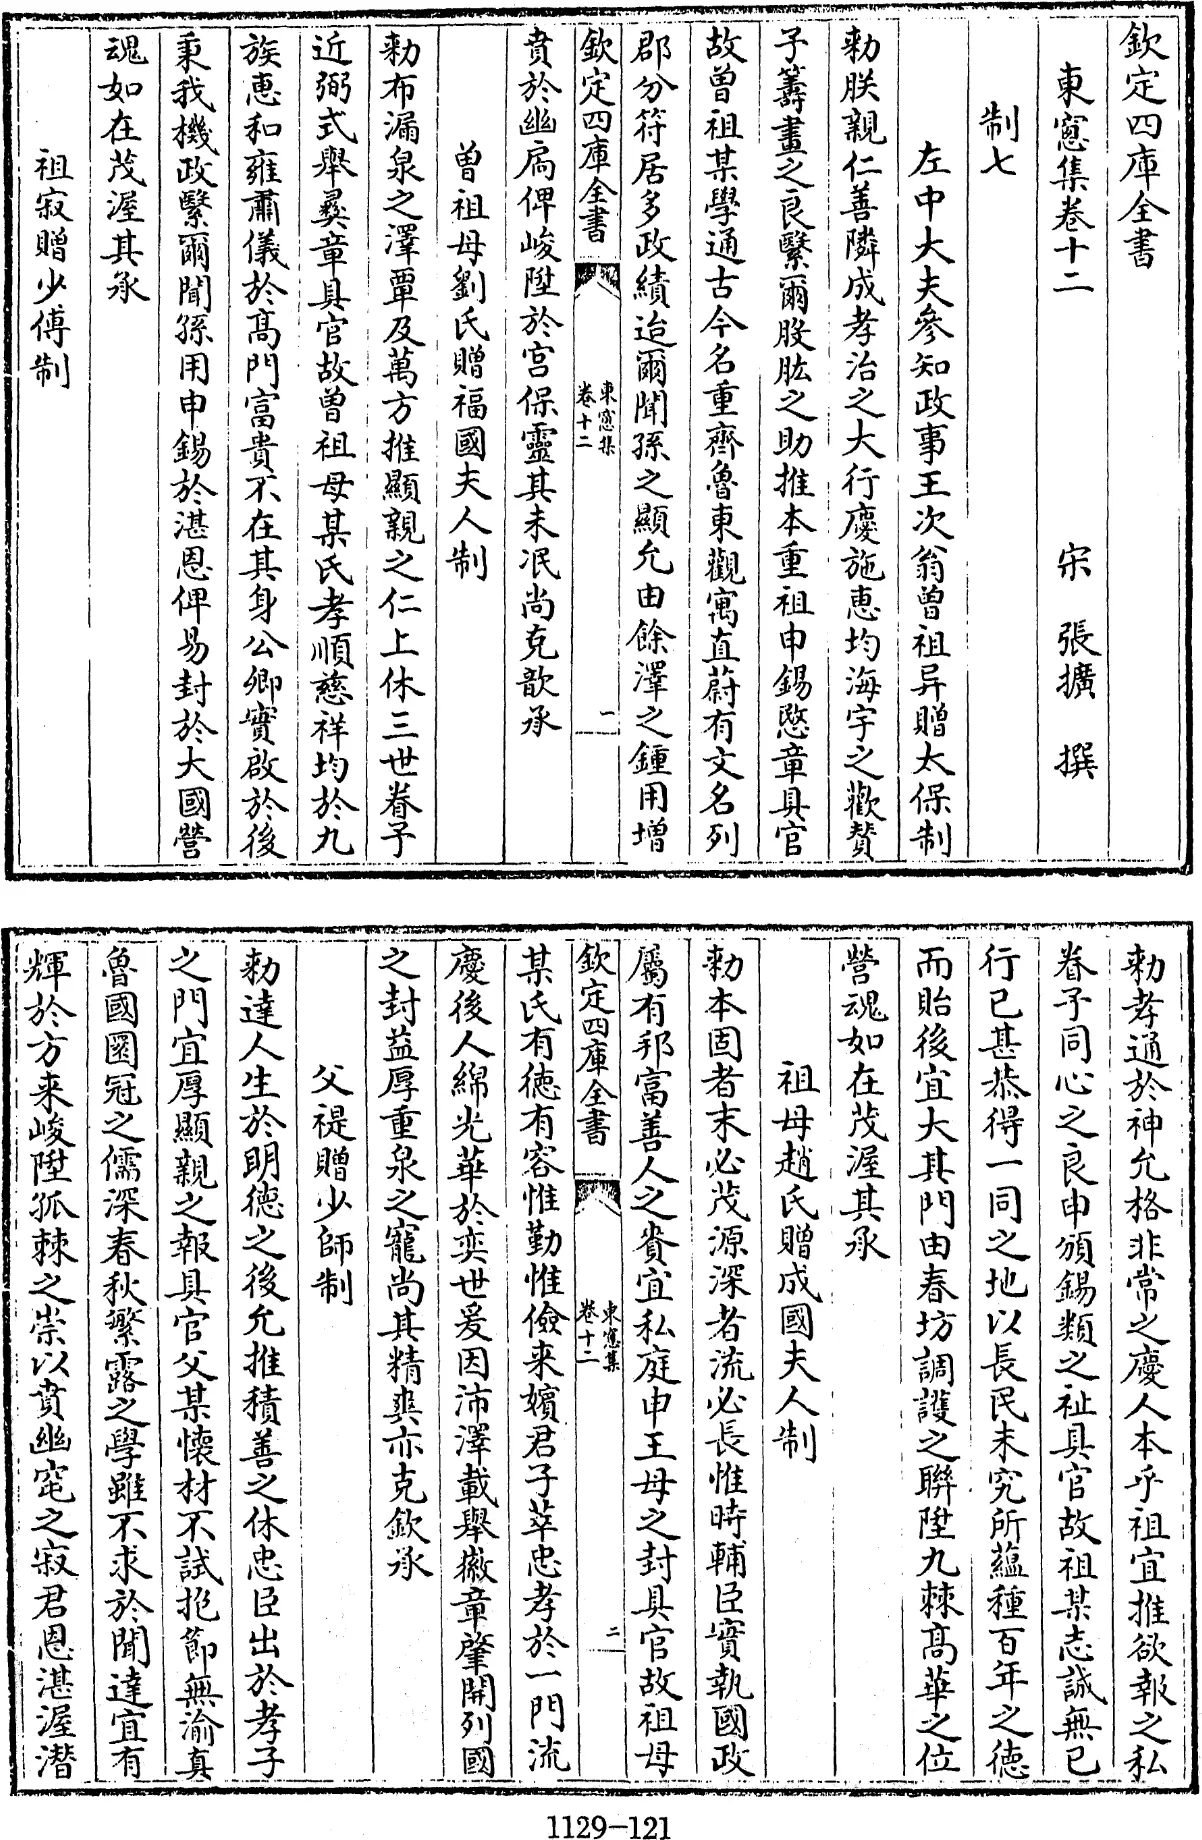 欽定四庫全書
東窻集卷十二　宋　張擴　撰
制七
左中大夫參知政事王次翁曾祖异贈太保制
勅朕親仁善隣成孝治之大行慶施惠均海宇之歡賛
子籌畫之良繄爾股肱之助推本重祖申錫愍章具官
故曾祖某學通古今名重齊魯東觀寓直蔚有文名列
郡分符居多政績迨爾聞孫之顯允由餘澤之鍾用增
欽定四庫全書　東窻集　卷十二　一
賁於幽扃俾峻陞於宫保靈其未泯尚克歆承
曾祖母劉氏贈福國夫人制
勅布漏泉之澤覃及萬方推顯親之仁上休三世眷予
近弼式舉彞章具官故曾祖母某氏孝順慈祥均於九
族惠和雍肅儀於髙門富貴不在其身公卿實啟於後
秉我機政繄爾聞孫用申錫於湛恩俾易封於大國營
魂如在茂渥其承
祖寂贈少傅制
勅孝通於神允格非常之慶人本乎祖宜推欲報之私
眷予同心之良申頒錫類之祉具官故祖某志誠無已
行已甚恭得一同之地以長民未究所藴種百年之德
而貽後宜大其門由春坊調護之聯陞九棘髙華之位
營魂如在茂渥其承
祖母趙氏贈成國夫人制
勅本固者末必茂源深者流必長惟時輔臣實執國政
屬有邦富善人之賚宜私庭申王母之封具官故祖母
欽定四庫全書　東窻集　卷十二　二
某氏有徳有容惟勤惟儉来嬪君子萃忠孝於一門流
慶後人綿光華於奕世爰因沛澤載舉徽章肇開列國
之封益厚重泉之寵尚其精爽亦克欽承
父禔贈少師制
勅達人生於明德之後允推積善之休忠臣出於孝子
之門宜厚顯親之報具官父某懷材不試抱節無渝真
魯國圜冠之儒深春秋繁露之學雖不求於聞達宜有
輝於方来峻陞孤棘之崇以賁幽窀之寂君恩湛渥潜
1129-121